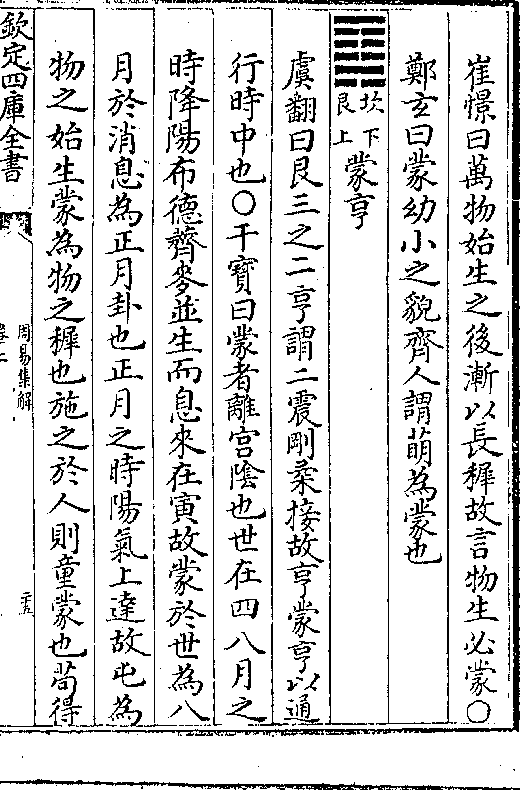 崔憬曰萬物始生之後漸以長穉故言物生必蒙〇
鄭玄曰蒙幼小之貌齊人謂萌為蒙也
坎下
艮上
蒙亨
虞翻曰艮三之二亨謂二震剛柔接故亨蒙亨以通
行時中也〇干寶曰蒙者離宮陰也世在四八月之
時降陽布德薺麥並生而息來在寅故蒙於世為八
月於消息為正月卦也正月之時陽氣上達故屯為
物之始生蒙為物之穉也施之於人則童蒙也苟得
欽定四庫全書
周易集解
卷二
二十五